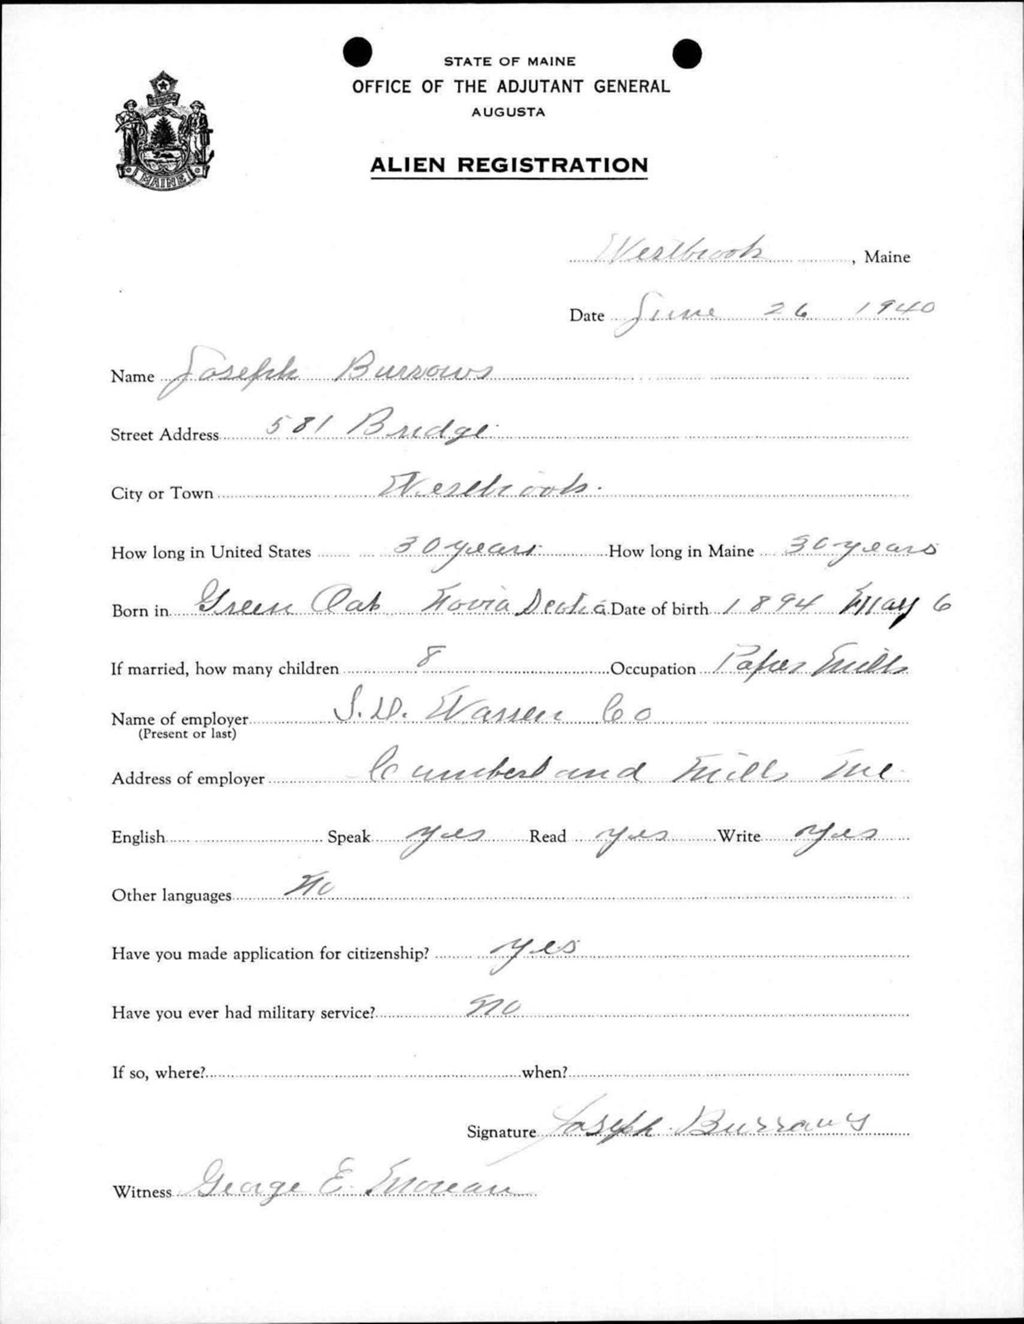 STATE OF MAINE
OFFICE OF THE ADJUTANT GENERAL
AUGUSTA
ALIEN REGISTRATION
MAINE
Westbrook, Maine
Date June 26 1940
Name Joseph Burrows
Street Address 581 Bridge
City or Town Westbrook.
How long in United States 30 years How long in Maine 30 years
Born in Green Oak Novia Scotia Date of birth 1894 May 6
If married, how many children 8 Occupation Paper Mills
Name of employer S.D. Warren Co
(Present or last)
Address of employer Cumberland Mills Me.
English Speak yes Read yes Write yes
Other languages No
Have you made application for citizenship? yes
Have you ever had military service? no
If so, where? when?
Signature Joseph Burrows
Witness George E. Moreau